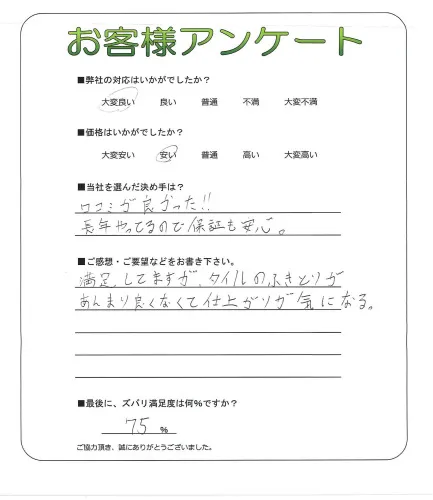 お客様アンケート
■弊社の対応はいかがでしたか？
大変良い 良い 普通 不満 大変不満
■価格はいかがでしたか？
大変安い 安い 普通 高い 大変高い
■当社を選んだ決め手は？
口コミが良かった!!
長年やってるので保証も安心。
■ご感想・ご要望などをお書き下さい。
満足してますが、タイルのふきとりが
あんまり良くなくて仕上がりが気になる。
■最後に、ズバリ満足度は何％ですか？
75 ％
ご協力頂き、誠にありがとうございました。